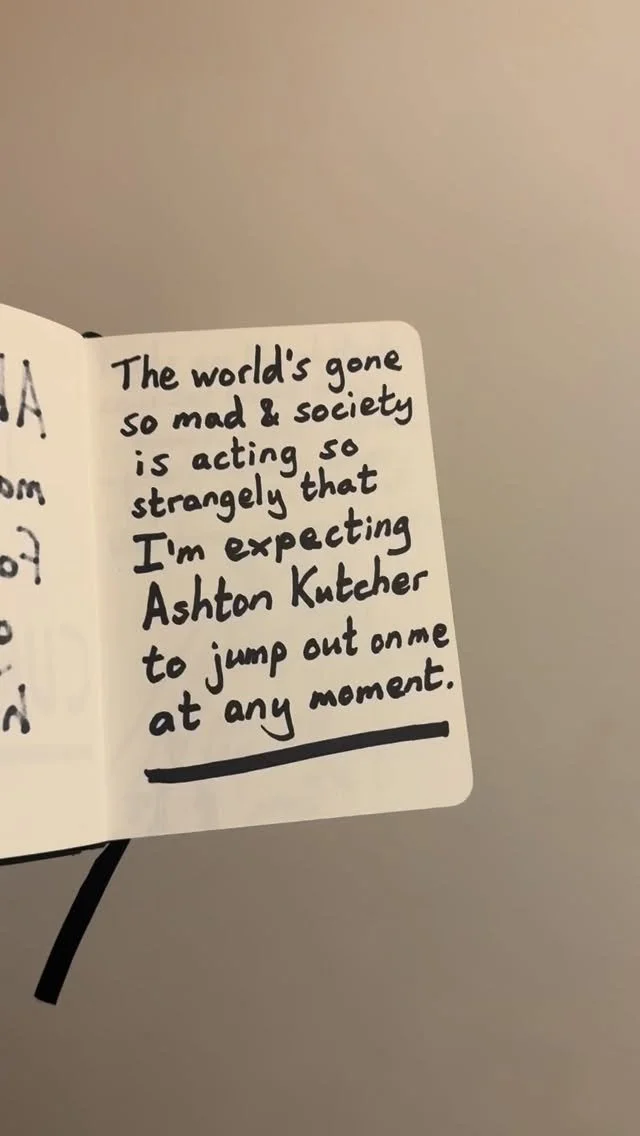 The world's gone
so mad & society
is acting so
strangely that
I'm expecting
Ashton Kutcher
to jump out on me
at any moment.